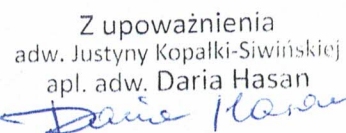 Z upoważnienia
adw. Justyny Kopałki-Siwińskiej
apl. adw. Daria Hasan
Daria Hasan